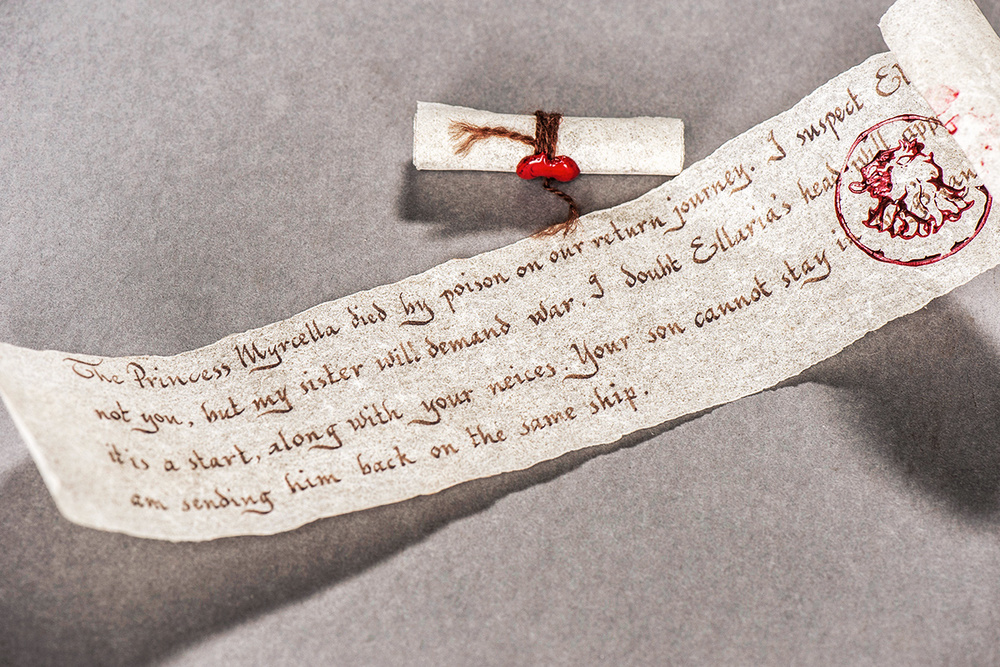 The Princess Myrcella died by poison on our return journey. I suspect El
not you, but my sister will demand war. I doubt Ellaria's head will app
it is a start, along with your neices. Your son cannot stay in
am sending him back on the same ship.